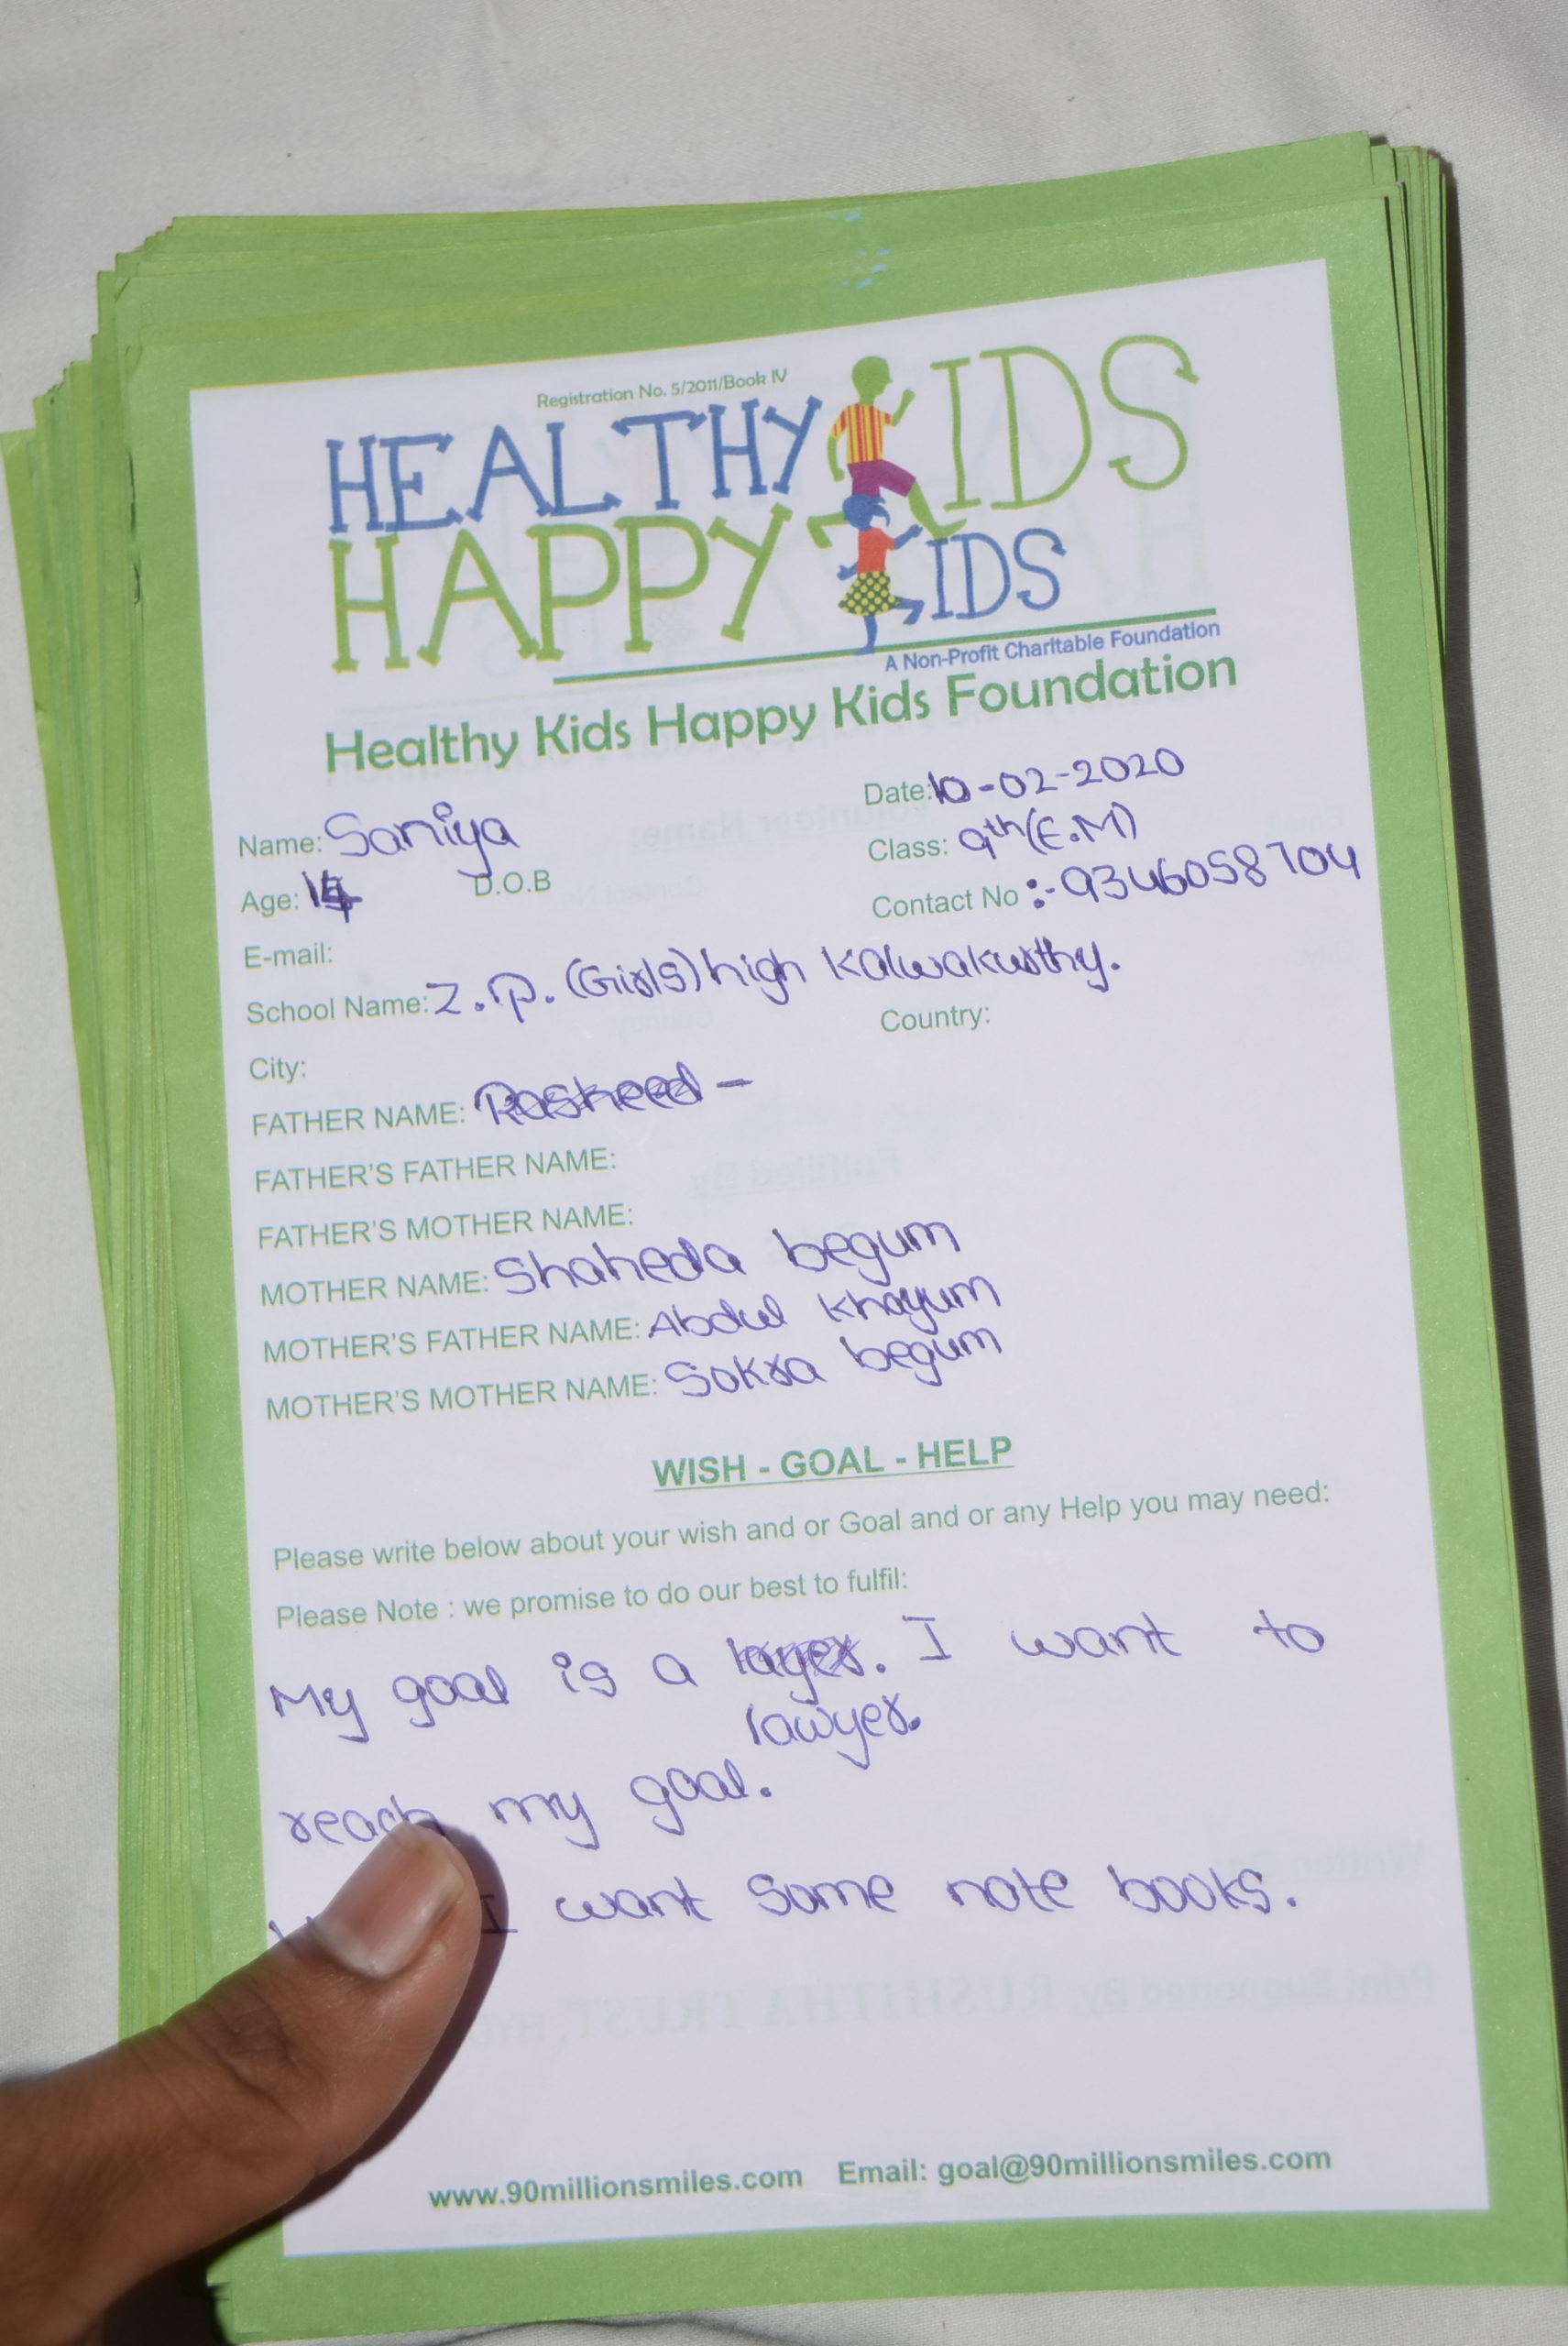 Registration No. 5/2011/Book IV
HEALTHY KIDS
HAPPY KIDS
A Non-Profit Charitable Foundation
Healthy Kids Happy Kids Foundation
Name: Saniya Date: 10-02-2020
Age: 14 D.O.B Class: 9th (E.M)
Contact No :- 9346058704
E-mail:
School Name: Z.P. (Girls) high Kalwakurthy.
City: Country:
FATHER NAME: Rasheed -
FATHER'S FATHER NAME:
FATHER'S MOTHER NAME:
MOTHER NAME: Shaheda begum
MOTHER'S FATHER NAME: Abdul Khayum
MOTHER'S MOTHER NAME: Sokra begum
WISH - GOAL - HELP
Please write below about your wish and or Goal and or any Help you may need:
Please Note : we promise to do our best to fulfil:
My goal is a layer. I want to
lawyer.
reach my goal.
I want some note books.
www.90millionsmiles.com Email: goal@90millionsmiles.com